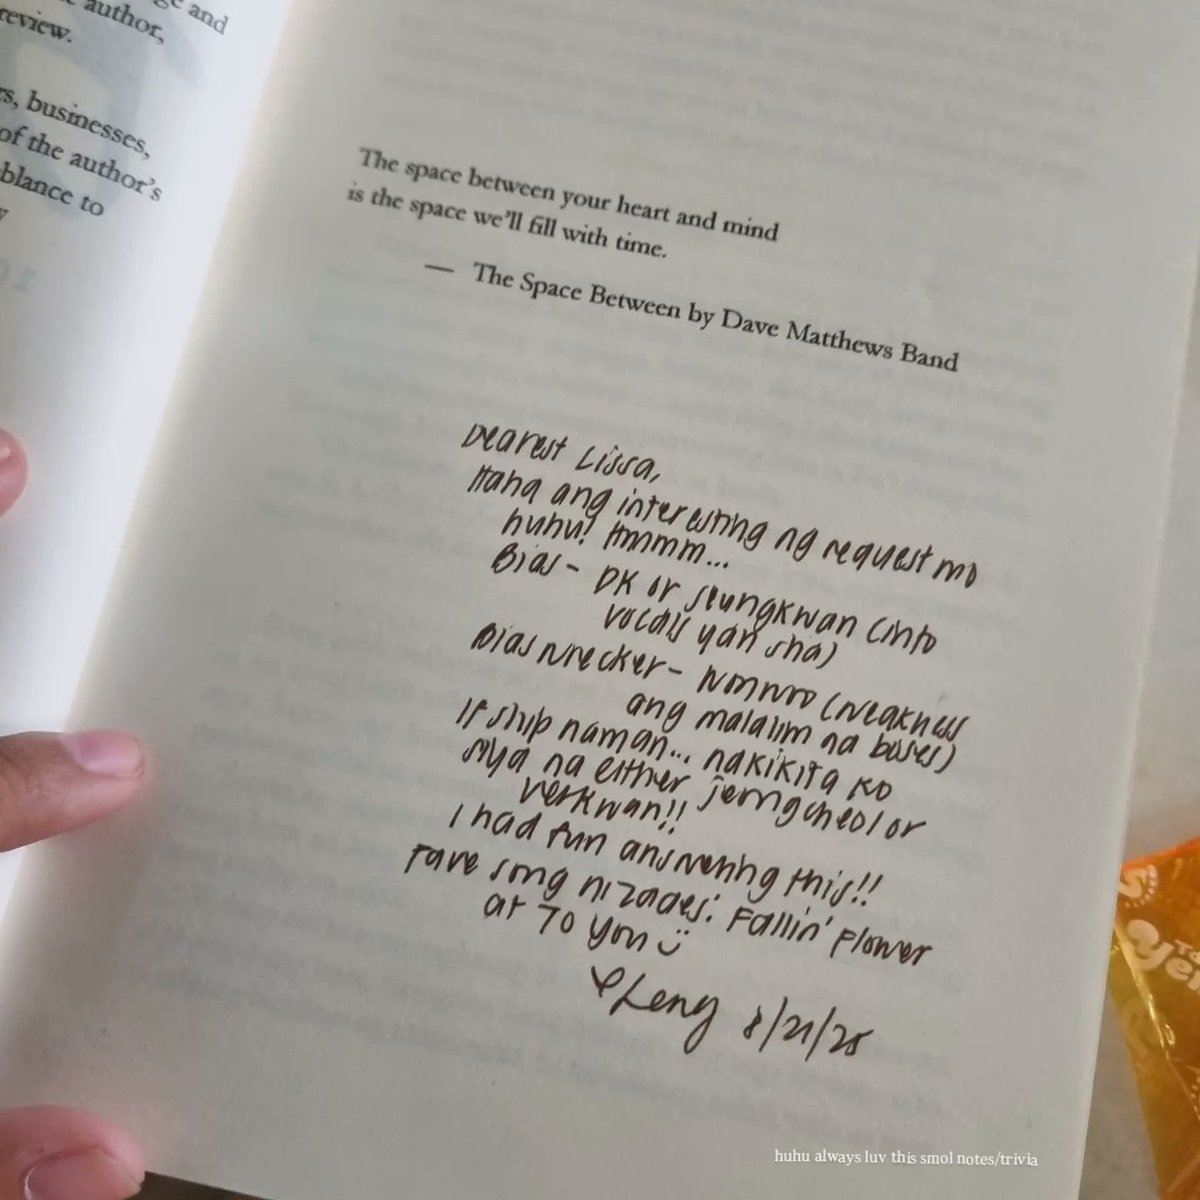 ge and
author,
review.
rs, businesses,
of the author's
blance to
The space between your heart and mind
is the space we'll fill with time.
— The Space Between by Dave Matthews Band
Dearest Lissa,
Haha ang interesting ng request mo
huhu! Hmmm...
Bias - DK or Seungkwan (into
vocals yan sha)
Bias wrecker - Wonwoo (weakness
ang malalim na boses)
If ship naman... nakikita ko
siya na either jeongcheol or
verkwan!!
I had fun answering this!!
Fave song ni Zades: Fallin' Flower
at To you ü
Leng 8/21/25
huhu always luv this smol notes/trivia